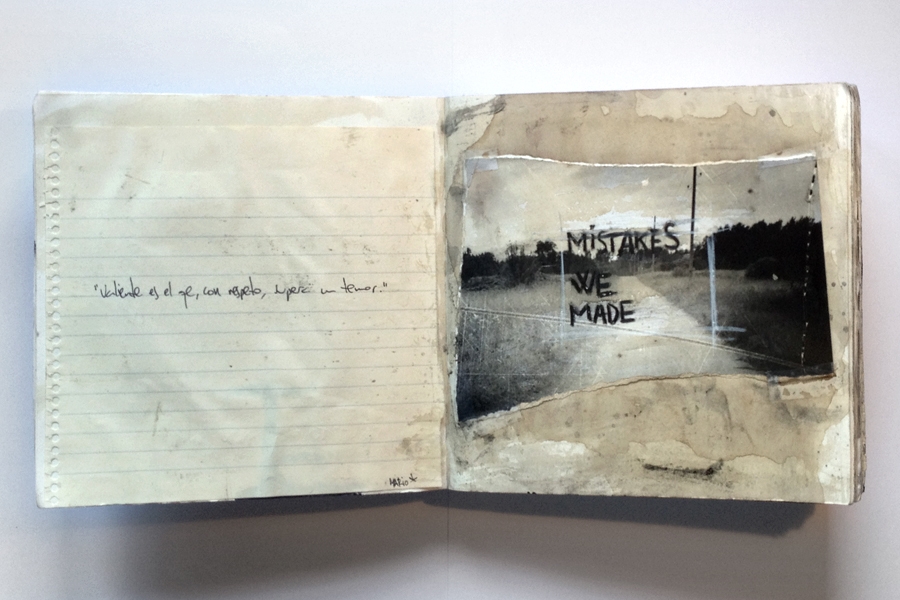 "Valiente es el qe, con respeto, supera un temor."
MARiO
MiSTAKES
WE
MADE